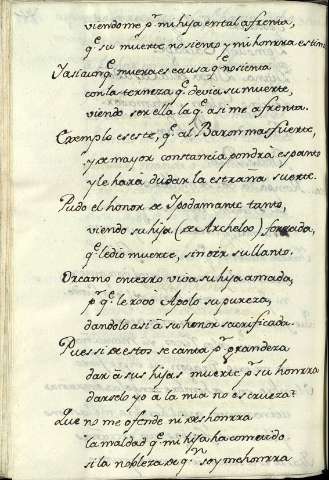 viendome pr mi hija en tal afrenta,
qe su muerte no siento y mi honrra estim
Y asi aunqe muera es causa qe no sienta
con la terneza qe devia su muerte,
viendo ser ella la qe asi me afrenta.
Exemplo es este, qe al Baron mas fuerte,
y de mayor constancia pondrà espanto
y le harà dudar la estraña suerte.
Pudo el honor de Ipodamante tanto,
viendo su hija (de Archeloo) forzada,
qe le dio muerte, sin oir su llanto.
Orcamo enterro viva su hija amada,
pr qe le robò Apolo su pureza,
dandola asi à su honor sacrificada.
Pues si de estos se canta pr grandeza
dar à sus hijas muerte pr su honrra
darselo yo à la mia no es crueza?
Que no me ofende ni deshonrra
la maldad qe mi hija ha cometido
si la nobleza de qn soy me honrra